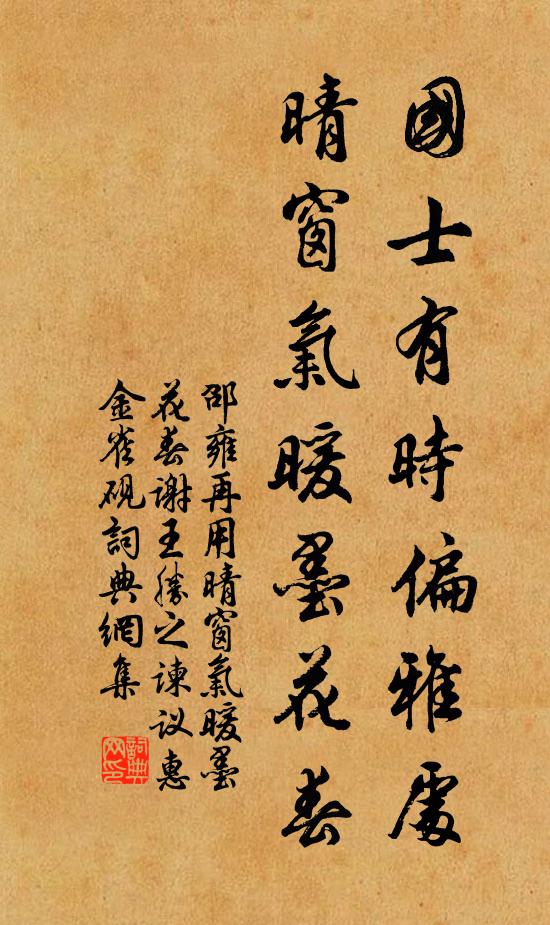 國士有時偏雅處
晴窗氣暖墨花春
邵雍再用晴窗氣暖墨
花春謝王勝之諫议惠
金雀砚詞典網集
詞典网印